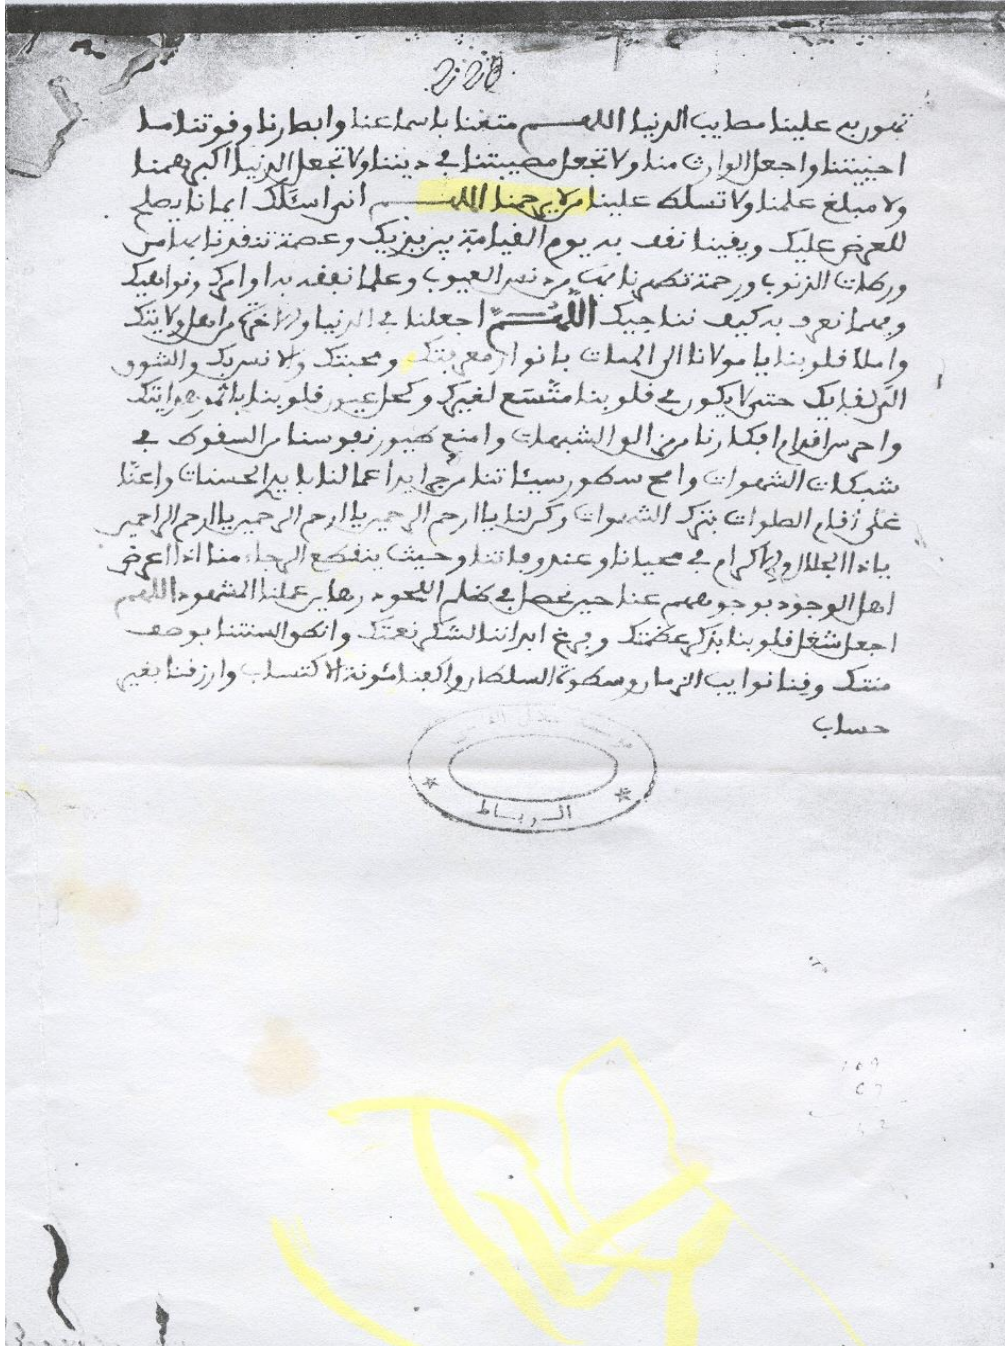 228
تهون به علينا مصايب الدنيا اللهم متعنا باسماعنا وابصارنا وقوتنا ما
احييتنا واجعل الوارث منا ولا تجعل مصيبتنا في ديننا ولا تجعل الدنيا اكبر همنا
ولا مبلغ علمنا ولا تسلط علينا من لا يرحمنا اللهم اني اسئلك ايمانا يصلح
للعرض عليك ويقينا نقف به يوم القيامة بين يديك وعصمة تنقذنا بها من
ورطات الذنوب ورحمة تطهرنا بها من دنس العيوب وعلما نفقه به اوامرك ونواهيك
وفهما نعرف به كيف نناجيك اللهم اجعلنا في الدنيا والاخرة من اهل ولايتك
واملأ قلوبنا يا مولانا الى الممات بانوار معرفتك ومحبتك والانس بك والشوق
الى لقايك حتى لا يكون في قلوبنا متسع لغيرك وكحل عيون قلوبنا باثمد هدايتك
واحرس اقدام افكارنا من الو الشبهات وامنع طيور نفوسنا من السقوط في
شبكات الشهوات وامح سطور سيئاتنا من جرايد اعمالنا بايد الحسنات واعنا
على اقام الصلوات بترك الشهوات وكن لنا يا ارحم الرحمين يا ارحم الرحمين يا ارحم الراحمين
ياذا الجلال والاكرام في محيانا وعند وفاتنا وحيث ينقطع الرجاء منا اذا اعرض
اهل الوجود بوجوههم عنا حين نحصل في ظلم اللحود رهاين عملنا المشهود اللهم
اجعل شغل قلوبنا بذكر عظمتك وفرغ ابداننا لشكر نعمتك وانطق السنتنا بوصف
منتك وقنا نوايب الزمان وسطوة السلطان واكفنا مئونة الاكتساب وارزقنا بغير
حساب
علال الفاسي
الرباط